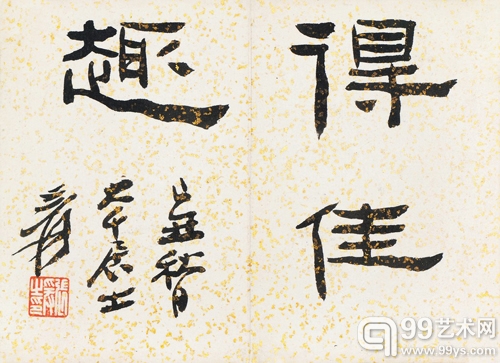 得佳
趣
己丑秋日
大千居士
爰
99艺术网
www.99ys.com